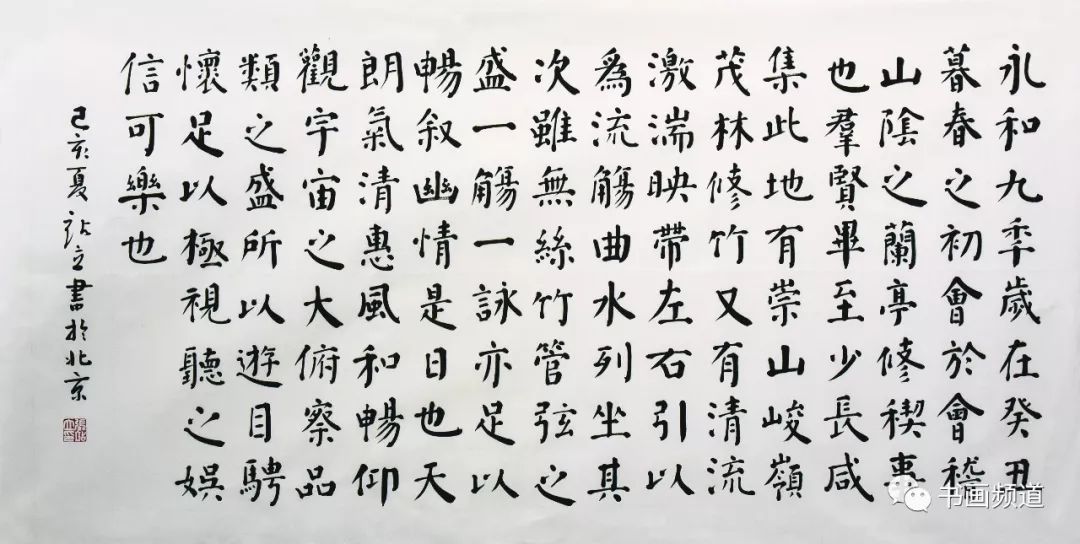 永和九秊歲在癸丑
暮春之初會於會稽
山陰之蘭亭修稧事
也羣賢畢至少長咸
集此地有崇山峻嶺
茂林修竹又有清流
激湍映帶左右引以
為流觴曲水列坐其
次雖無絲竹管弦之
盛一觴一詠亦足以
暢叙幽情是日也天
朗氣清惠風和暢仰
觀宇宙之大俯察品
類之盛所以遊目騁
懷足以極視聽之娛
信可樂也
己亥夏 立書於北京
书画频道